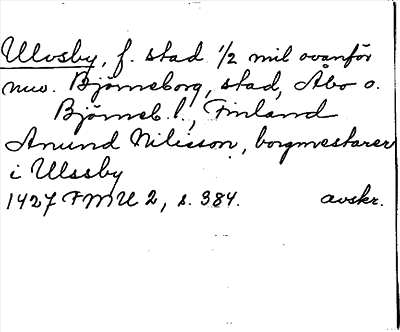 Ulvsby, f. stad 1/2 mil ovanför
nuv. Björneborg, stad, Åbo o.
Björneb. l., Finland
Amund Nilisson, borgmestarer
i Ulssby
1427 FMU 2, s. 384. avskr.